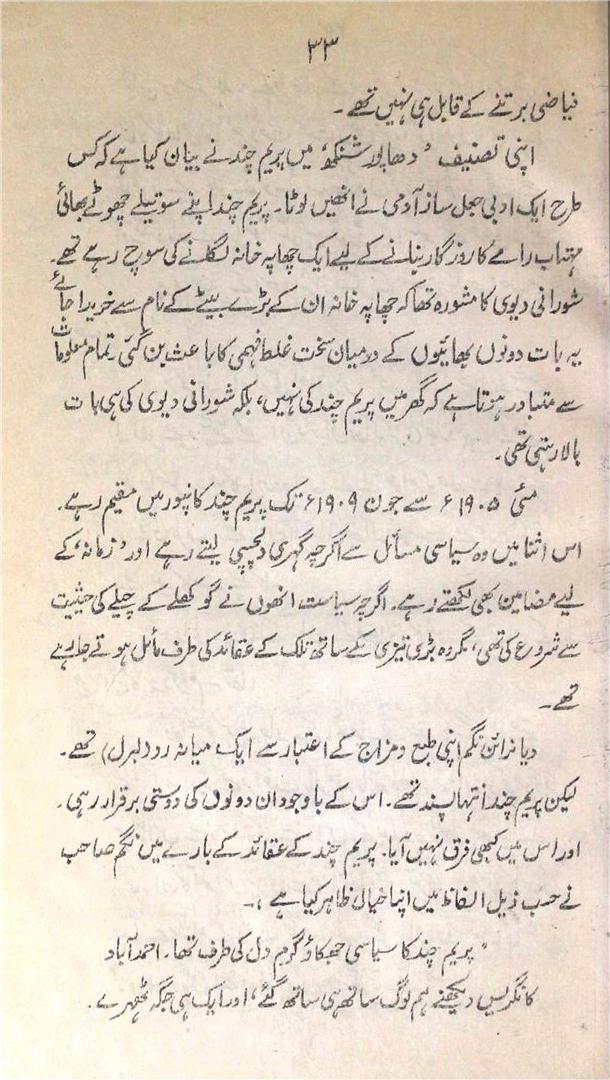 ۳۳
فیاضی برتنے کے قابل ہی نہیں تھے۔
اپنی تصنیف ’دھاپور شنکھ‘ میں پریم چند نے بیان کیا ہے کہ کس
طرح ایک ادبی جعل ساز آدمی نے انھیں لوٹا۔ پریم چند اپنے سوتیلے چھوٹے بھائی
مہتاب رائے کا روزگار بنانے کے لیے ایک چھاپہ خانہ لگانے کی سوچ رہے تھے۔
شورانی دیوی کا مشورہ تھا کہ چھاپہ خانہ ان کے بڑے بیٹے کے نام سے خریدا جائے
یہ بات دونوں بھائیوں کے درمیان سخت غلط فہمی کا باعث بن گئی۔ تمام معلومات
سے متبادر ہوتا ہے کہ گھر میں پریم چند کی نہیں، بلکہ شورانی دیوی کی ہی بات
بالا رہتی تھی۔
مئی ۱۹۰۵ء سے جون ۱۹۰۹ء تک پریم چند کانپور میں مقیم رہے۔
اس اثنا میں وہ سیاسی مسائل سے اگرچہ گہری دلچسپی لیتے رہے اور ’زمانہ‘ کے
لیے مضامین بھی لکھتے رہے۔ اگرچہ سیاست انھوں نے گوکھلے کے چیلے کی حیثیت
سے شروع کی تھی، مگر وہ بڑی تیزی کے ساتھ تلک کے عقائد کی طرف مائل ہوتے جا رہے
تھے۔
دیا نرائن نگم اپنی طبع و مزاج کے اعتبار سے ایک میانہ رو (لبرل) تھے۔
لیکن پریم چند انتہا پسند تھے۔ اس کے باوجود ان دونوں کی دوستی برقرار رہی۔
اور اس میں کبھی فرق نہیں آیا۔ پریم چند کے عقائد کے بارے میں نگم صاحب
نے حسب ذیل الفاظ میں اپنا خیال ظاہر کیا ہے :۔
’پریم چند کا سیاسی جھکاؤ گرم دل کی طرف تھا۔ احمد آباد
کانگریس دیکھنے ہم لوگ ساتھ ہی ساتھ گئے، اور ایک ہی جگہ ٹھہرے۔